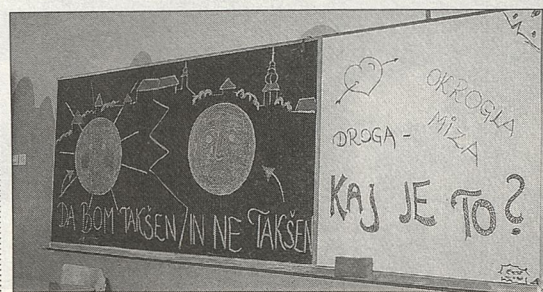 DA BOM TAKŠEN / IN NE TAKŠEN
OKROGLA
MIZA
DROGA -
KAJ JE TO?